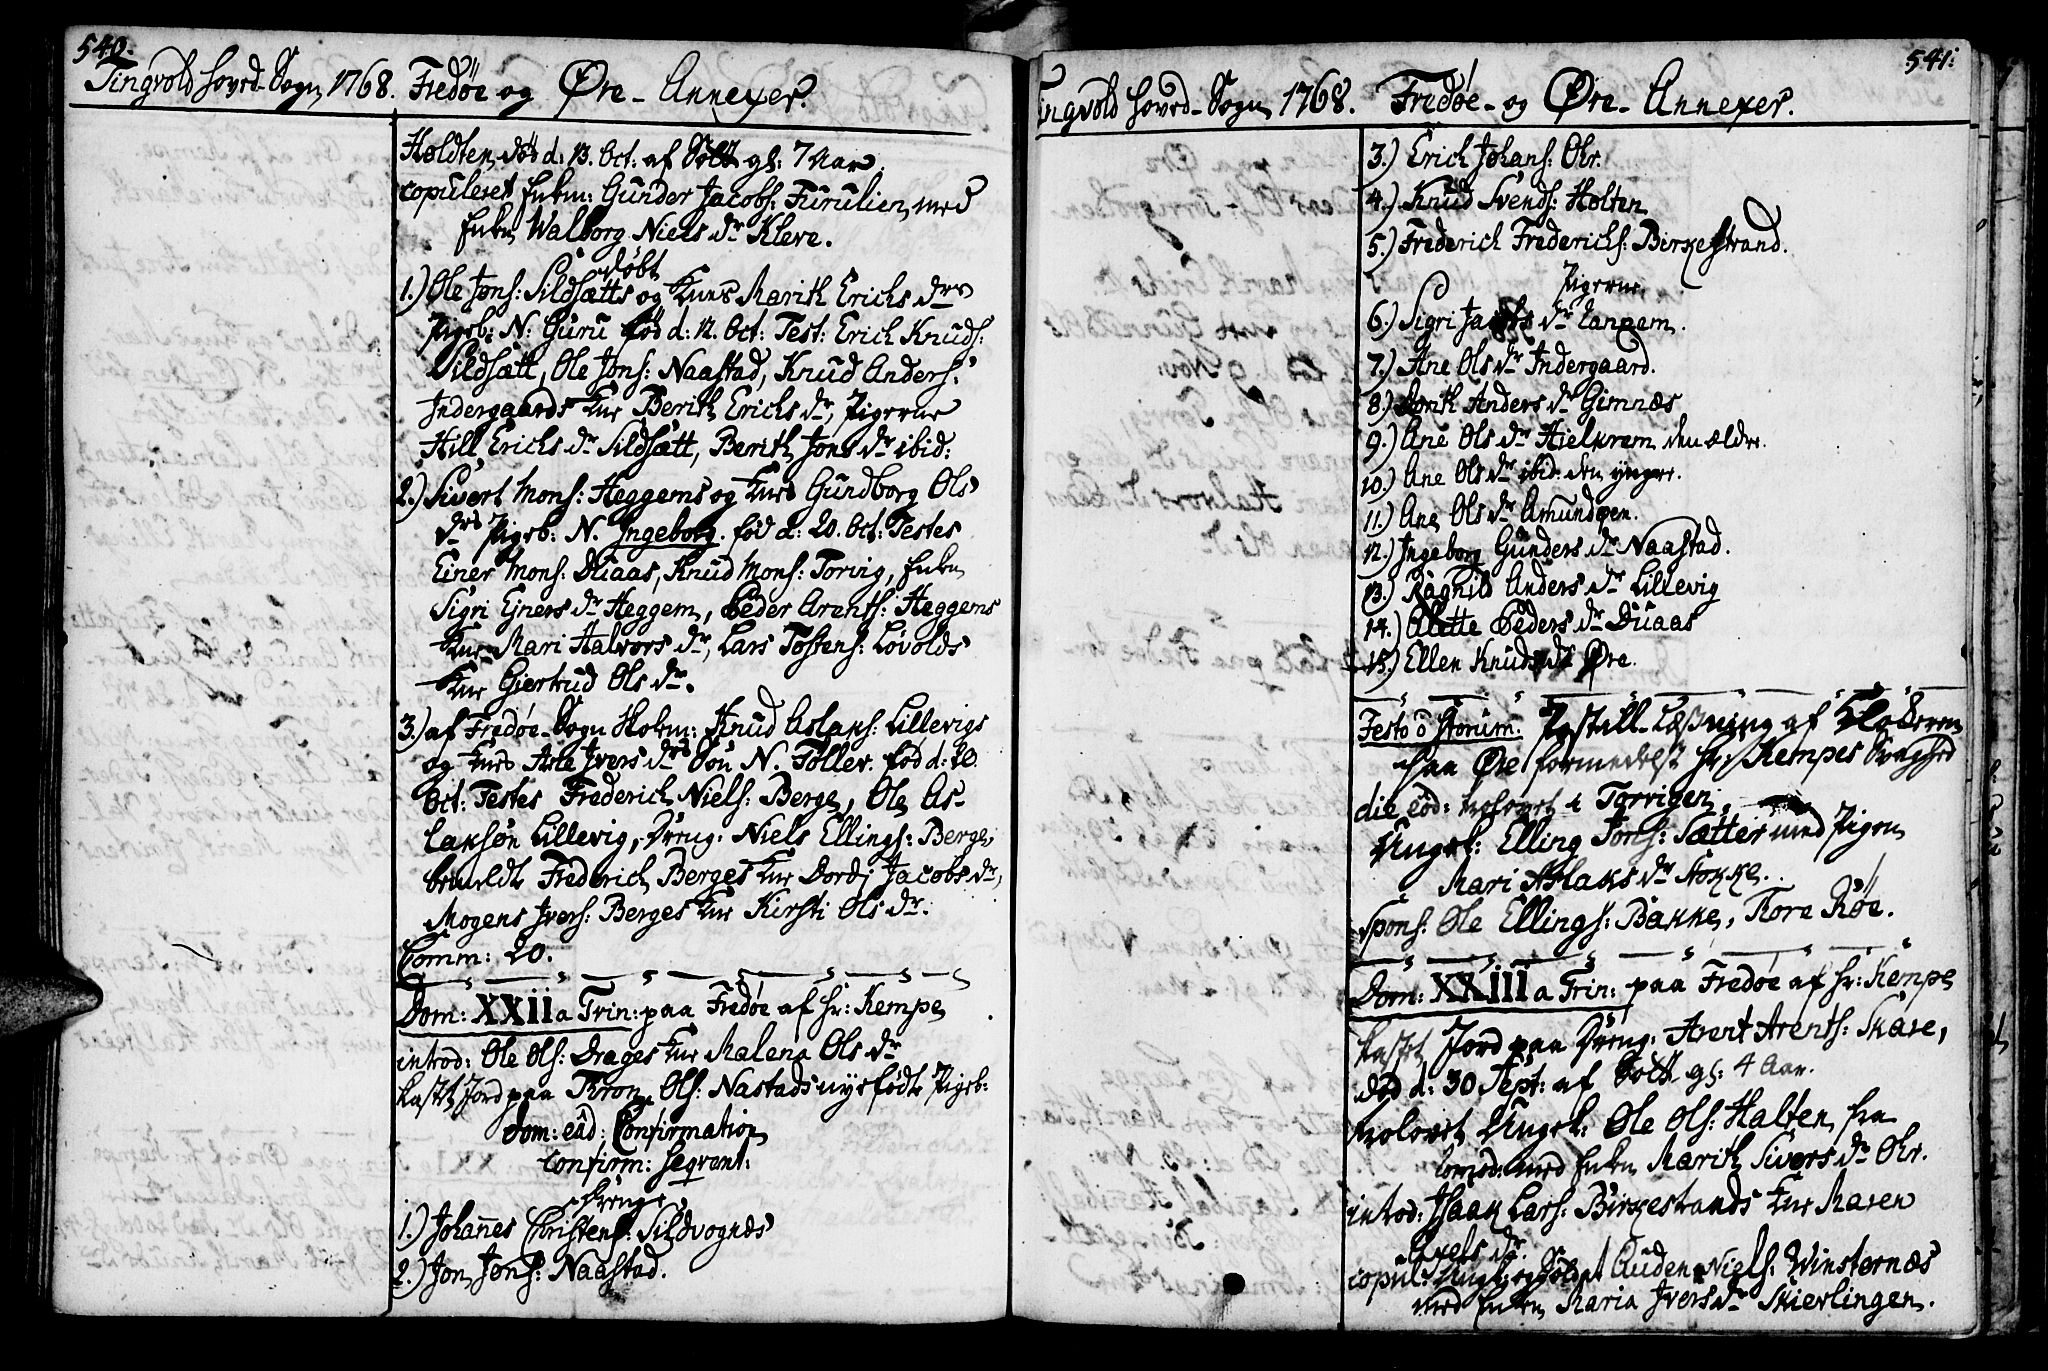 540.
Tingvold hoved-Sogn 1768. Fredøe og Øre-Annexer.
Holdten død d: 13. Oct: af Sött gl: 7 Aar
copuleret Enkm: Gunder Jacobs: Furulien med
Enken Walborg Niels Dr Kleve.
Døbt
1.) Ole Jons: Sildsætts og Knes Marith Erichs Drs
Pigeb: N: Guru fød d: 12. Oct: Test: Erich Knuds:
Sildsætt, Ole Jons: Naastad, Knud Anders:
Indergaards Kne Berith Erichs Dr, Pigerne
Hill Erichs Dr Sildsætt, Berith Jons Dr ibid:
2.) Sivert Mons: Heggems og Knes Gundborg Ols
Drs Pigeb: N. Ingeborg. fød d: 20. Oct: Testes
Einer Mons: Duaas, Knud Mons: Toring, Enken
Sigri Ejners Dr Heggem, Peder Arents: Heggems
Kne Mari Halvors Dr, Lars Tostens: Løvolds
Kne Giertrud Ols Dr.
3.) af Fredøe-Sogn Skolem: Knud Aslaks: Lillevigs
og Knes Asle Ivers Drs Søn N. Tøller. fød d: 20.
Oct: Testes Frederich Niels: Berge, Ole As-
laksøn Lillevig, Dreng: Niels Ellings: Berge,
bemeldte Frederich Berges Kne Dordi Jacobs Dr,
Mogens Ivers: Berges Kne Kirsti Ols Dr.
Comm: 20.
Dom: XXII a Trin: paa Fredøe af Hr: Kempe
introd: Ole Ols: Drages Kne Malena Ols Dr
Kastet Jord paa Thron Ols: Nastads nysfødte Pigeb:
Dom: eâd: Confirmation
Confirm: seqvent:
Drenge
1.) Johannes Christens: Sildvognæs
2.) Jon Jons: Naastad.
541:
Tingvold hoved-Sogn 1768. Fredøe- og Øre-Annexer.
3.) Erich Johans: Ohr.
4.) Knud Svends: Holten
5.) Frederich Frederichs: Birkestrand.
Pigerne
6.) Sigri Jacobs Dr Langem.
7.) Ane Ols Dr Indergaard.
8.) Dorith Anders Dr Gimnæs
9.) Ane Ols Dr Hielkrem den ældre.
10.) Ane Ols Dr ibid: den yngere.
11.) Ane Ols Dr Amundøen.
12.) Ingeborg Gunders Dr Naastad.
13.) Ragnild Anders Dr Lillevig
14.) Olette Peders Dr Duaas
15.) Ellen Knuds Dr Øre.
Festo ô storum: Postill-Læsning af Klokeren
paa Øre formedelst Hr: Kempes Svaghed
die eod: trolovet i Torrigen
Ungk: Elling Jons: Sætter med Pigen
Mari Aslaks Dr Stokke.
Spons: Ole Ellings: Bakke, Tore Røe.
Dom: XXIII a Trin: paa Fredøe af Hr: Kempe
Kastet Jord paa Dreng: Arent Arents: Skare,
død d: 30 Sept: af Sött gl: 4 Aar.
trolovet Ungk: Ole Ols: Halten fra
med Enken Marith Sivers Dr Ohr.
introd: Isaak Lars: Birkestrands Kne Maren
Axels Dr.
copul: Ungk: og Soldat Auden Niels: Winsternæs
med Enken Maria Ivers Dr Skierlingen.